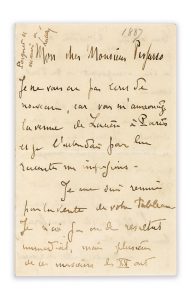 1887
Mon cher Monsieur Pissarro
Je ne vous ai pas
nouveau, car vous m'annoncez
la venue de Lucien à Paris
et je l'attendais pour lui
mes
Je me suis remué
pour la vente de votre tableau
Je n'ai pas eu de résultat
immédiat, mais plusieurs
de ces messieurs des XX ont